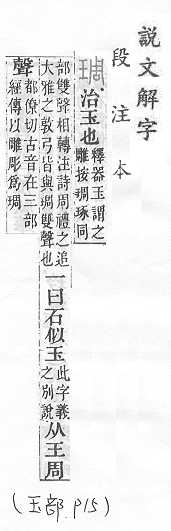 說文解字
段注本
琱
治玉也
釋器玉謂之
雕按琱琢同
部雙聲相轉注詩周禮之追
大雅之敦弓皆與琱雙聲也
一曰石似玉
此字義
之別說
从王周
聲
都僚切古音在三部
經傳以雕彫爲琱
(玉部 P15)